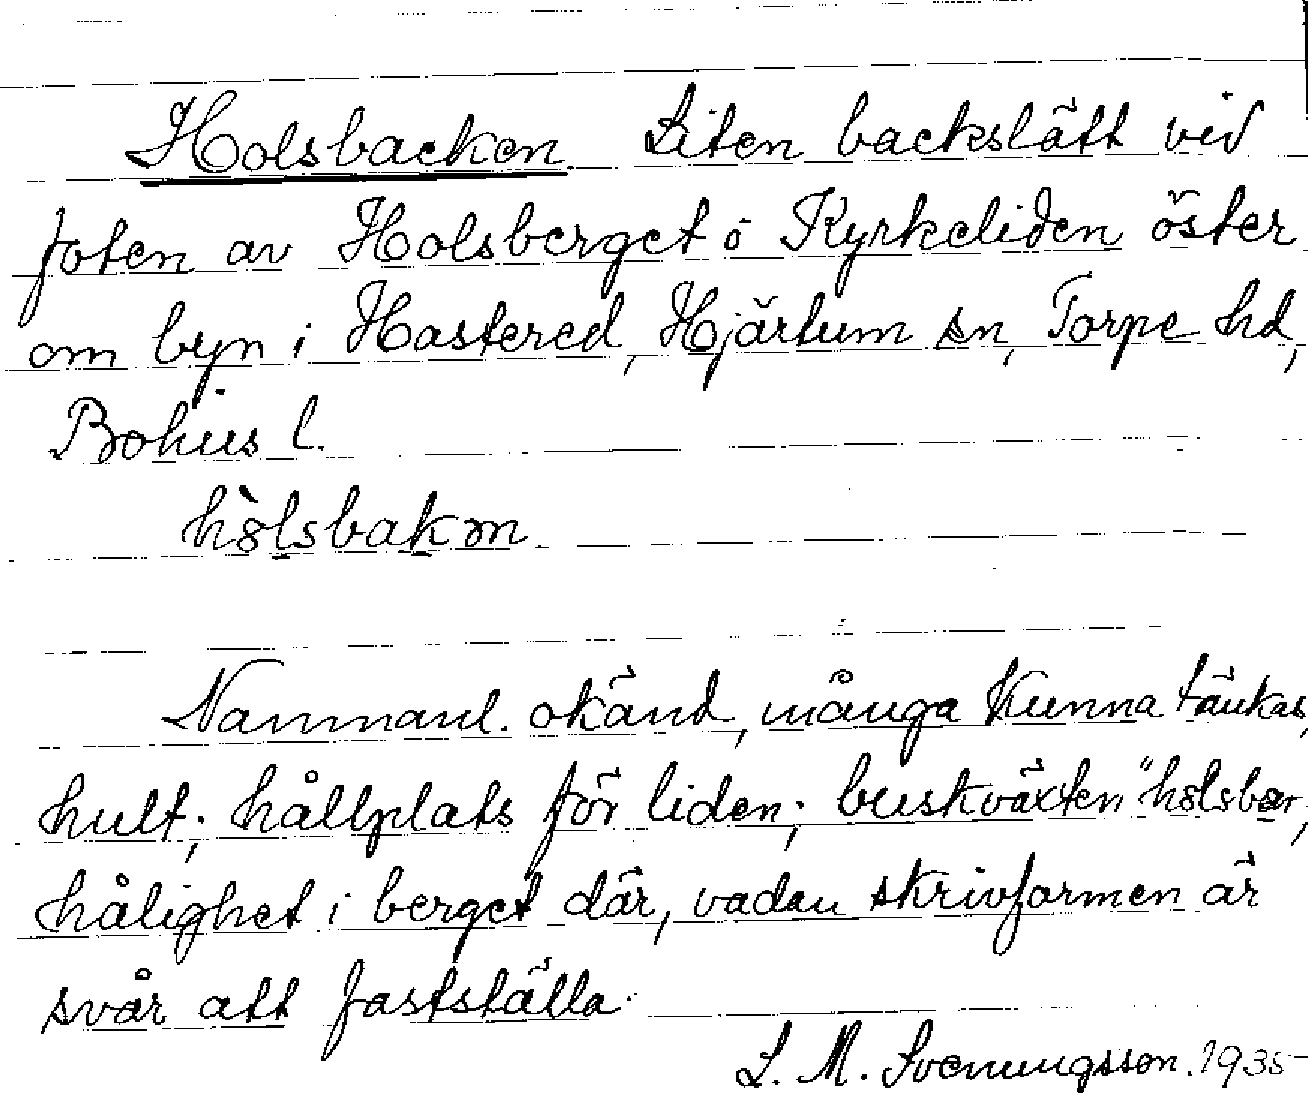 Holsbacken Liten backslätt vid
foten av Holsberget o Kyrkeliden öster
om byn i Hastered, Hjärtum sn, Torpe hd,
Bohus l.
hòlsbakən
Namnanl. okänd, många kunna tänkas,
hult; hållplats för liden; buskväxten "holsbær,
hålighet i berget där, vadan skrivformen är
svår att fastställa.
L. M. Svenungsson. 1935